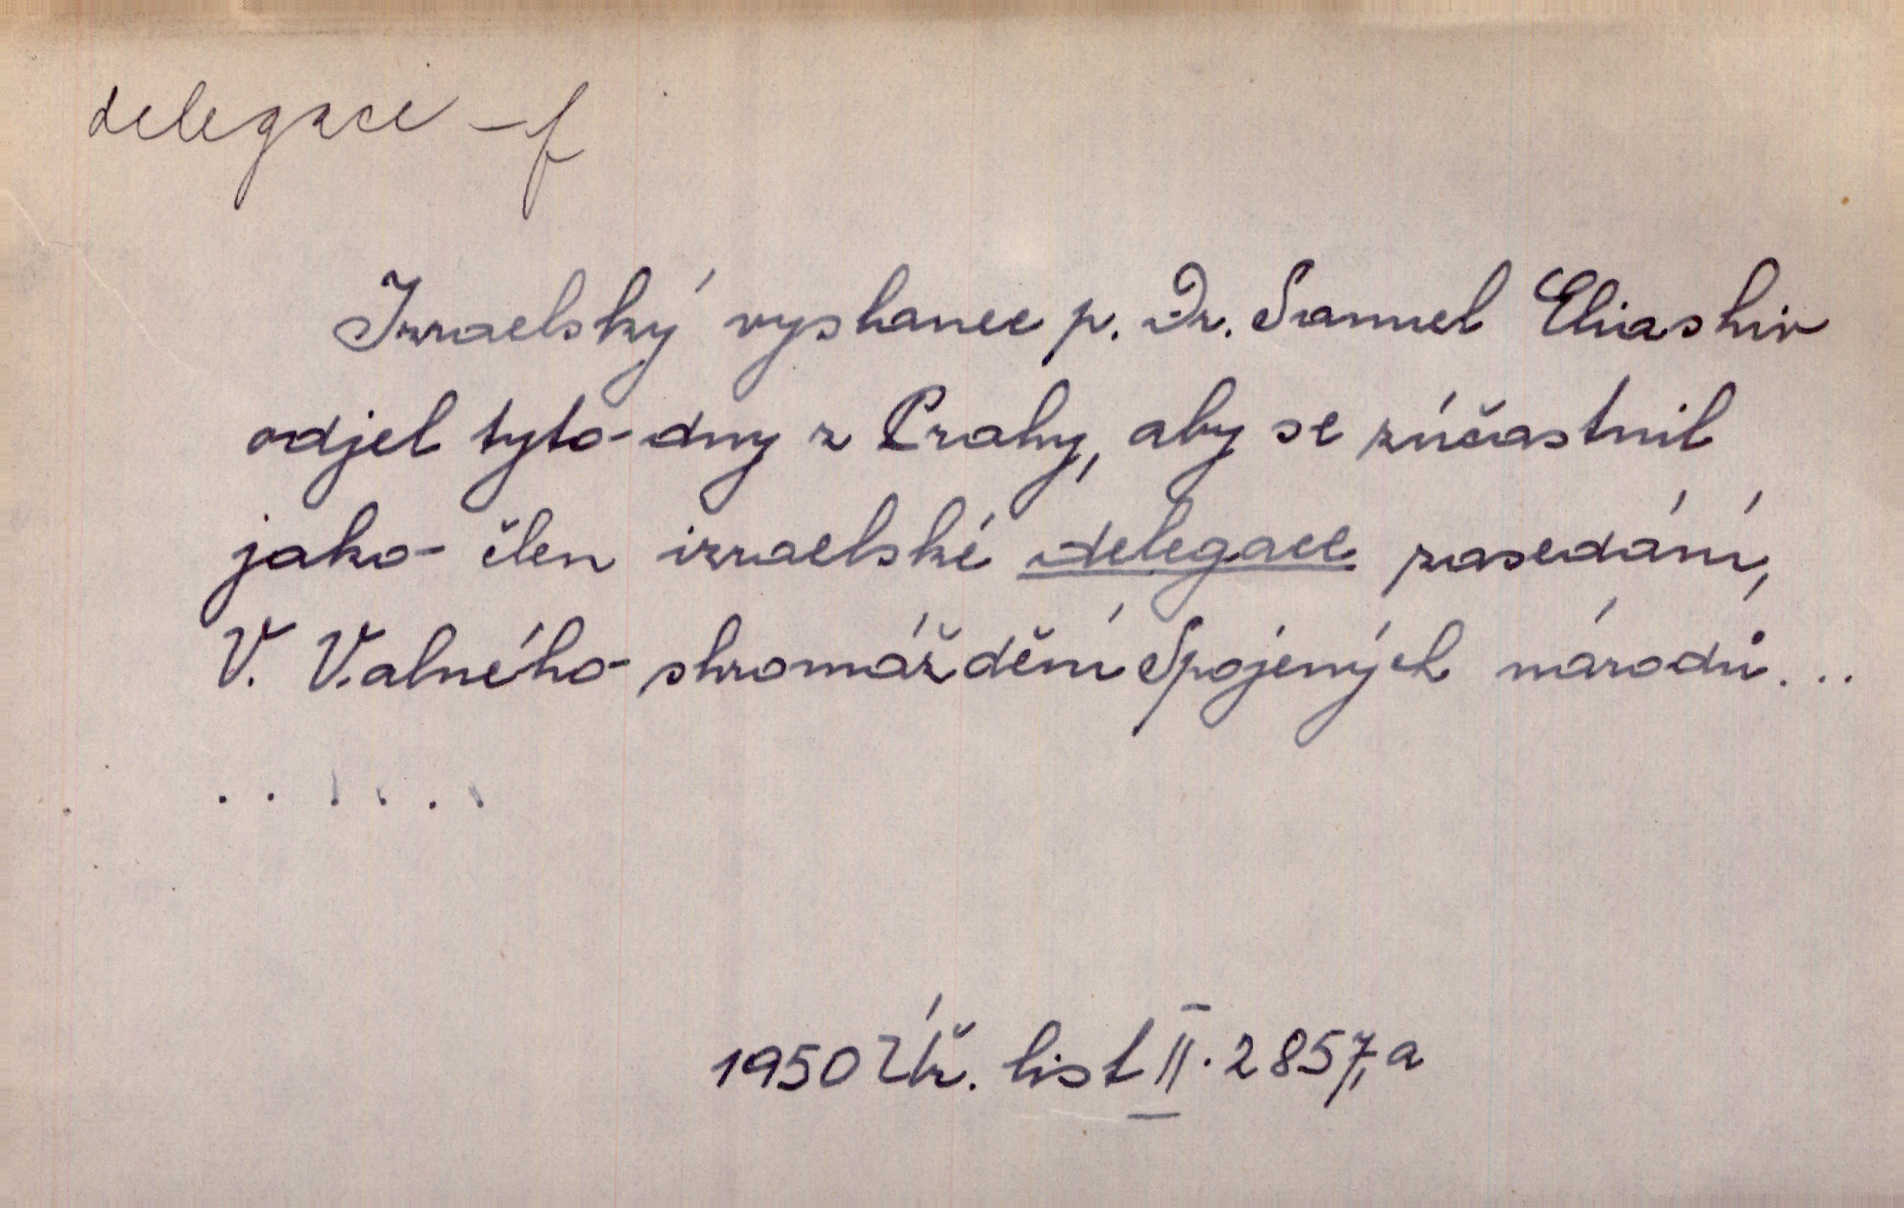 delegace -f
Izraelský vyslanec p. Dr. Samuel Eliashiv
odjel tyto dny z Prahy, aby se zúčastnil
jako člen izraelské delegace zasedání,
V. Valného shromáždění Spojených národů...
......
1950 Úř. list II. 2857,a